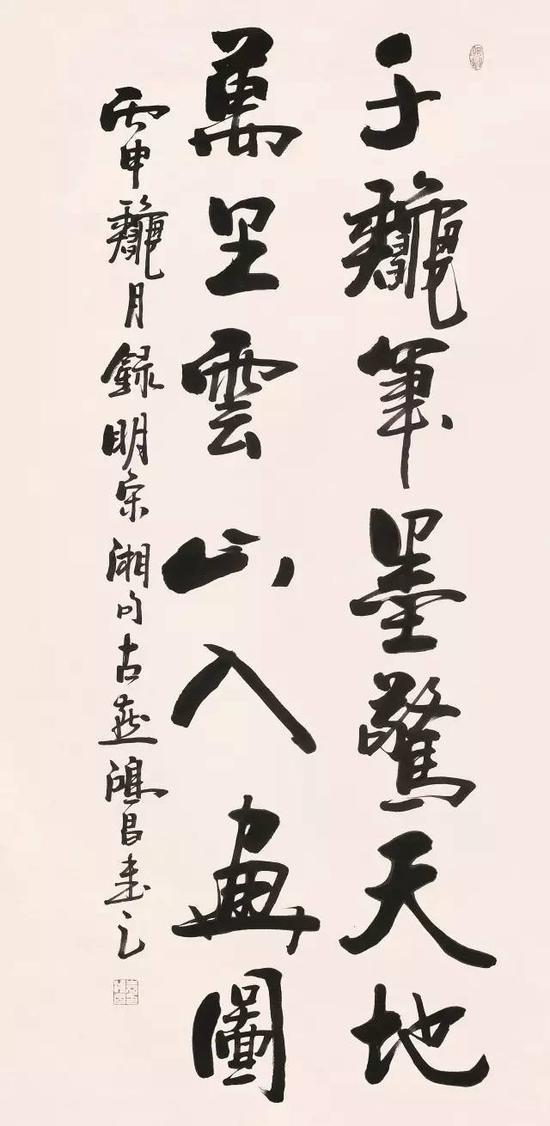 千龝筆墨驚天地
萬里雲山入畫圖
丙申龝月錄明宋湘句古燕鴻昌書之